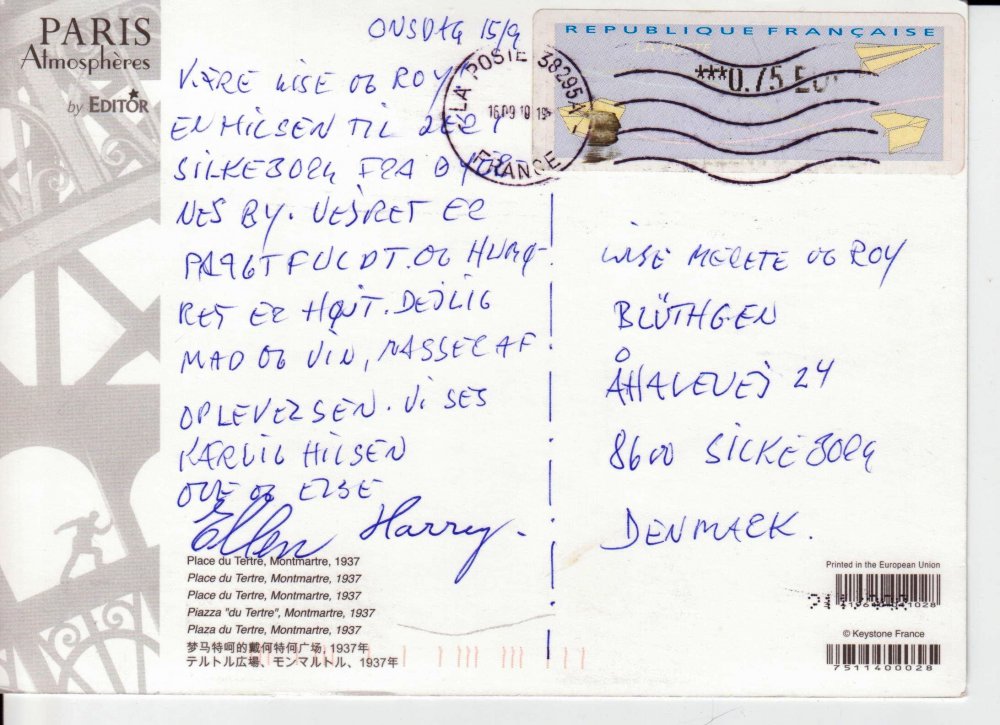 PARIS
Atmosphères
by EDITOR
ONSDAG 15/9
KÆRE LISE OG ROY
EN HILSEN TIL JER I
SILKEBORG FRA BYER
NES BY. VEJRET ER
PRAGTFULDT. OG HUMØ-
RET ER HØJT. DEJLIG
MAD OG VIN, MASSER AF
OPLEVELSER. VI SES
KÆRLIG HILSEN
OVE OG ELSE
Ellen Harry.
REPUBLIQUE FRANÇAISE
LA POSTE
***0,75 EU
LA POSTE 38295A
FRANCE
LISE MERETE OG ROY
BLÜTHGEN
ÅHALEVEJ 24
8600 SILKEBORG
DENMARK.
Place du Tertre, Montmartre, 1937
Place du Tertre, Montmartre, 1937
Place du Tertre, Montmartre, 1937
Piazza "du Tertre", Montmartre, 1937
Plaza du Tertre, Montmartre, 1937
梦马特呵的戴何特何广场, 1937年
テルトル広場、モンマルトル、1937年
Printed in the European Union
© Keystone France
7511400028